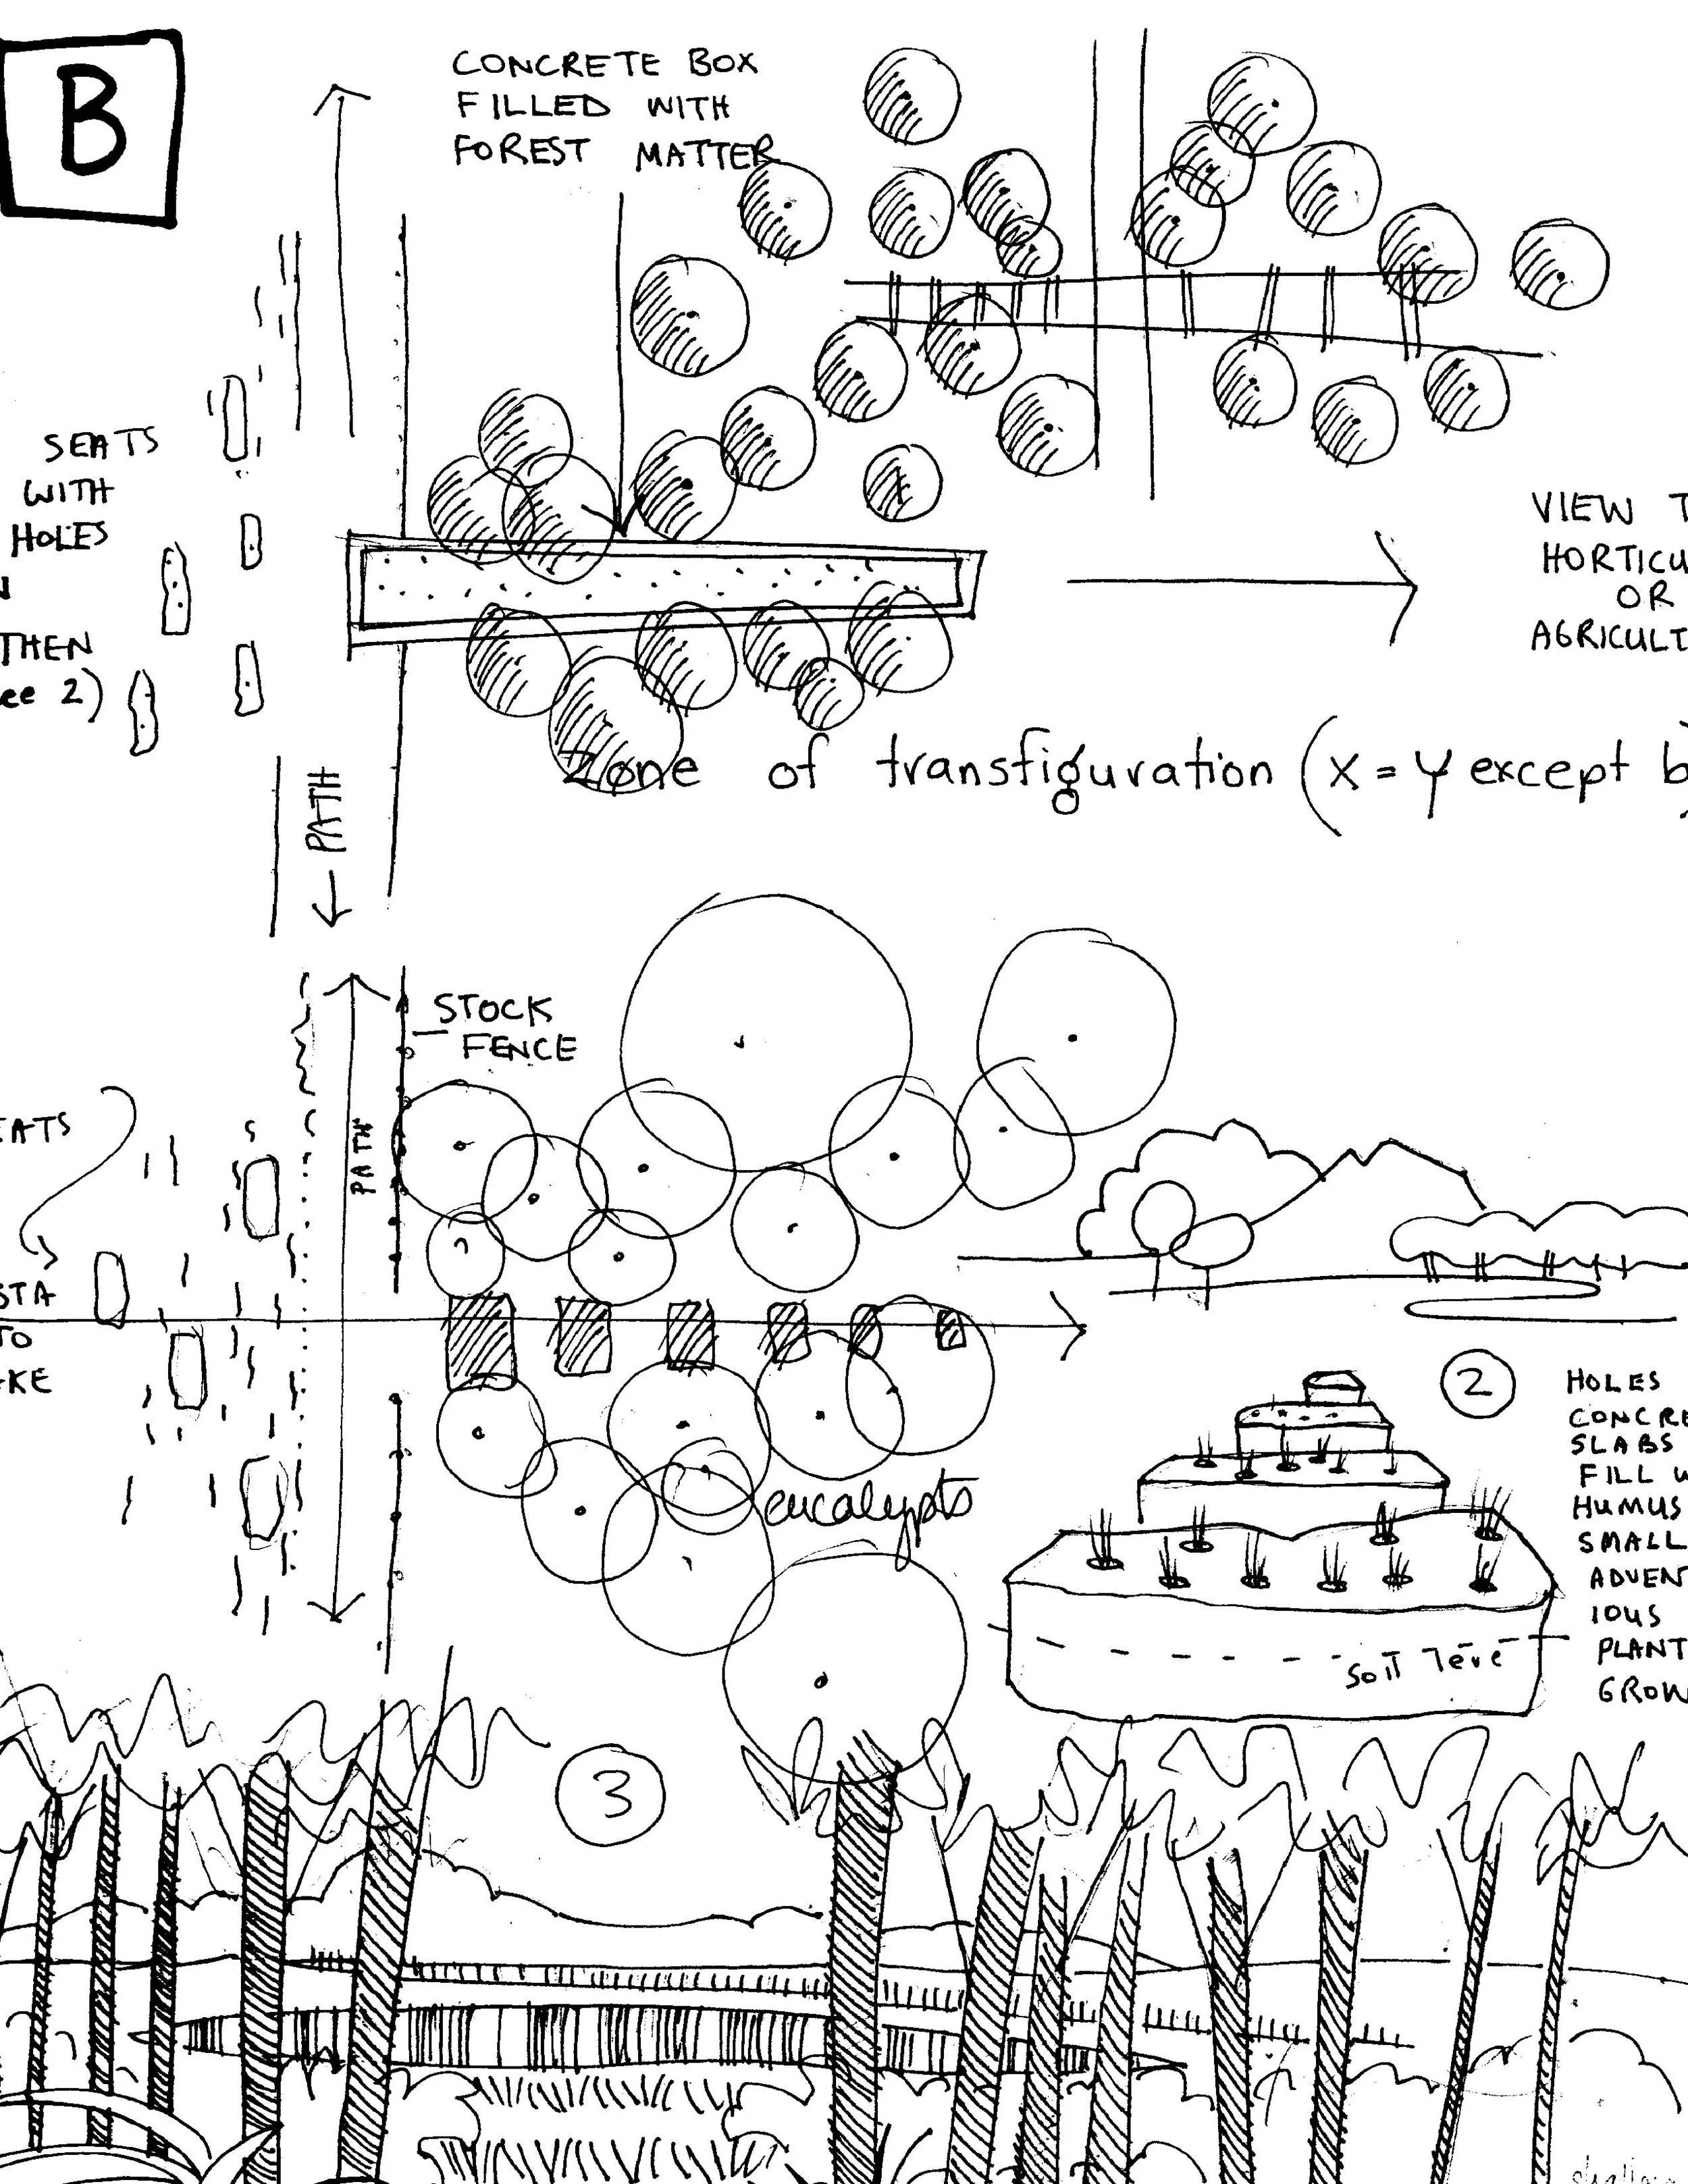 B
CONCRETE BOX
FILLED WITH
FOREST MATTER
SEATS
WITH
HOLES
THEN
ee 2)
VIEW T
HORTICU
OR
AGRICULT
Zone of transfiguration (x = y except b
← PATH
STOCK
FENCE
PATH
EATS
STA
TO
KE
eucalypts
2
HOLES
CONCRE
SLABS
FILL W
HUMUS
SMALL
ADVEN
IOUS
PLANT
GROW
Soil leve
3